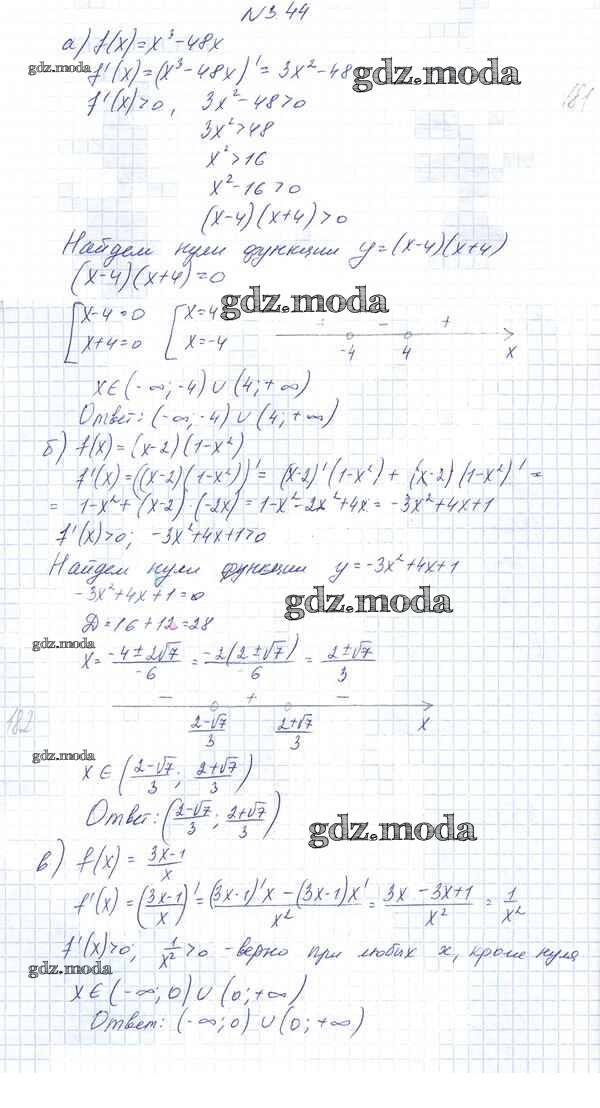 N 3.44
а) f(x)=x³-48x
gdz.moda
f'(x)=(x³-48x)'=3x²-48
gdz.moda
f'(x)>0, 3x²-48>0
181
3x²>48
x²>16
x²-16>0
(x-4)(x+4)>0
Найдем нули функции y=(x-4)(x+4)
(x-4)(x+4)=0
gdz.moda
[x-4=0 [x=4 + - +
gdz.moda
x+4=0 x=-4 -4 4 x
x∈(-∞;-4)∪(4;+∞)
Ответ: (-∞;-4)∪(4;+∞)
б) f(x)=(x-2)(1-x²)
gdz.moda
f'(x)=((x-2)(1-x²))'=(x-2)'(1-x²)+(x-2)(1-x²)'=
= 1-x²+(x-2)·(-2x)=1-x²-2x²+4x=-3x²+4x+1
f'(x)>0; -3x²+4x+1>0
Найдем нули функции y=-3x²+4x+1
-3x²+4x+1=0
gdz.moda
Д=16+12=28
gdz.moda
x=(-4±2√7)/-6=-2(2±√7)/-6=(2±√7)/3
- + -
182
(2-√7)/3 (2+√7)/3 x
gdz.moda
x∈((2-√7)/3; (2+√7)/3)
Ответ: ((2-√7)/3; (2+√7)/3)
gdz.moda
в) f(x)=(3x-1)/x
gdz.moda
f'(x)=((3x-1)/x)'=((3x-1)'x-(3x-1)x')/x²=(3x-3x+1)/x²=1/x²
f'(x)>0; 1/x²>0 -верно при любых x, кроме нуля
gdz.moda
x∈(-∞;0)∪(0;+∞)
Ответ: (-∞;0)∪(0;+∞)
gdz.moda